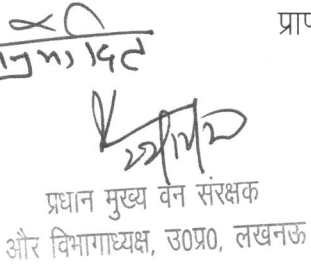 प्राप
अनुमोदित
प्रधान मुख्य वन संरक्षक
और विभागाध्यक्ष, उ0प्र0, लखनऊ